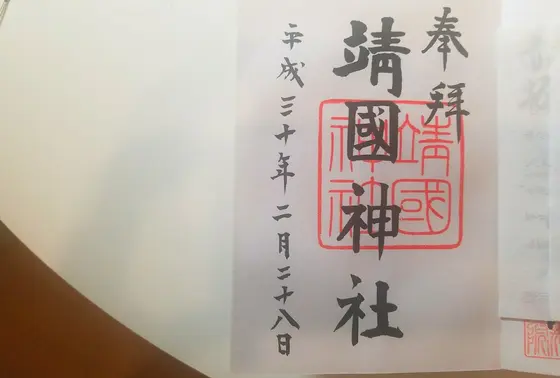 奉拜
靖國神社
靖國神社
平成三十年二月二十八日